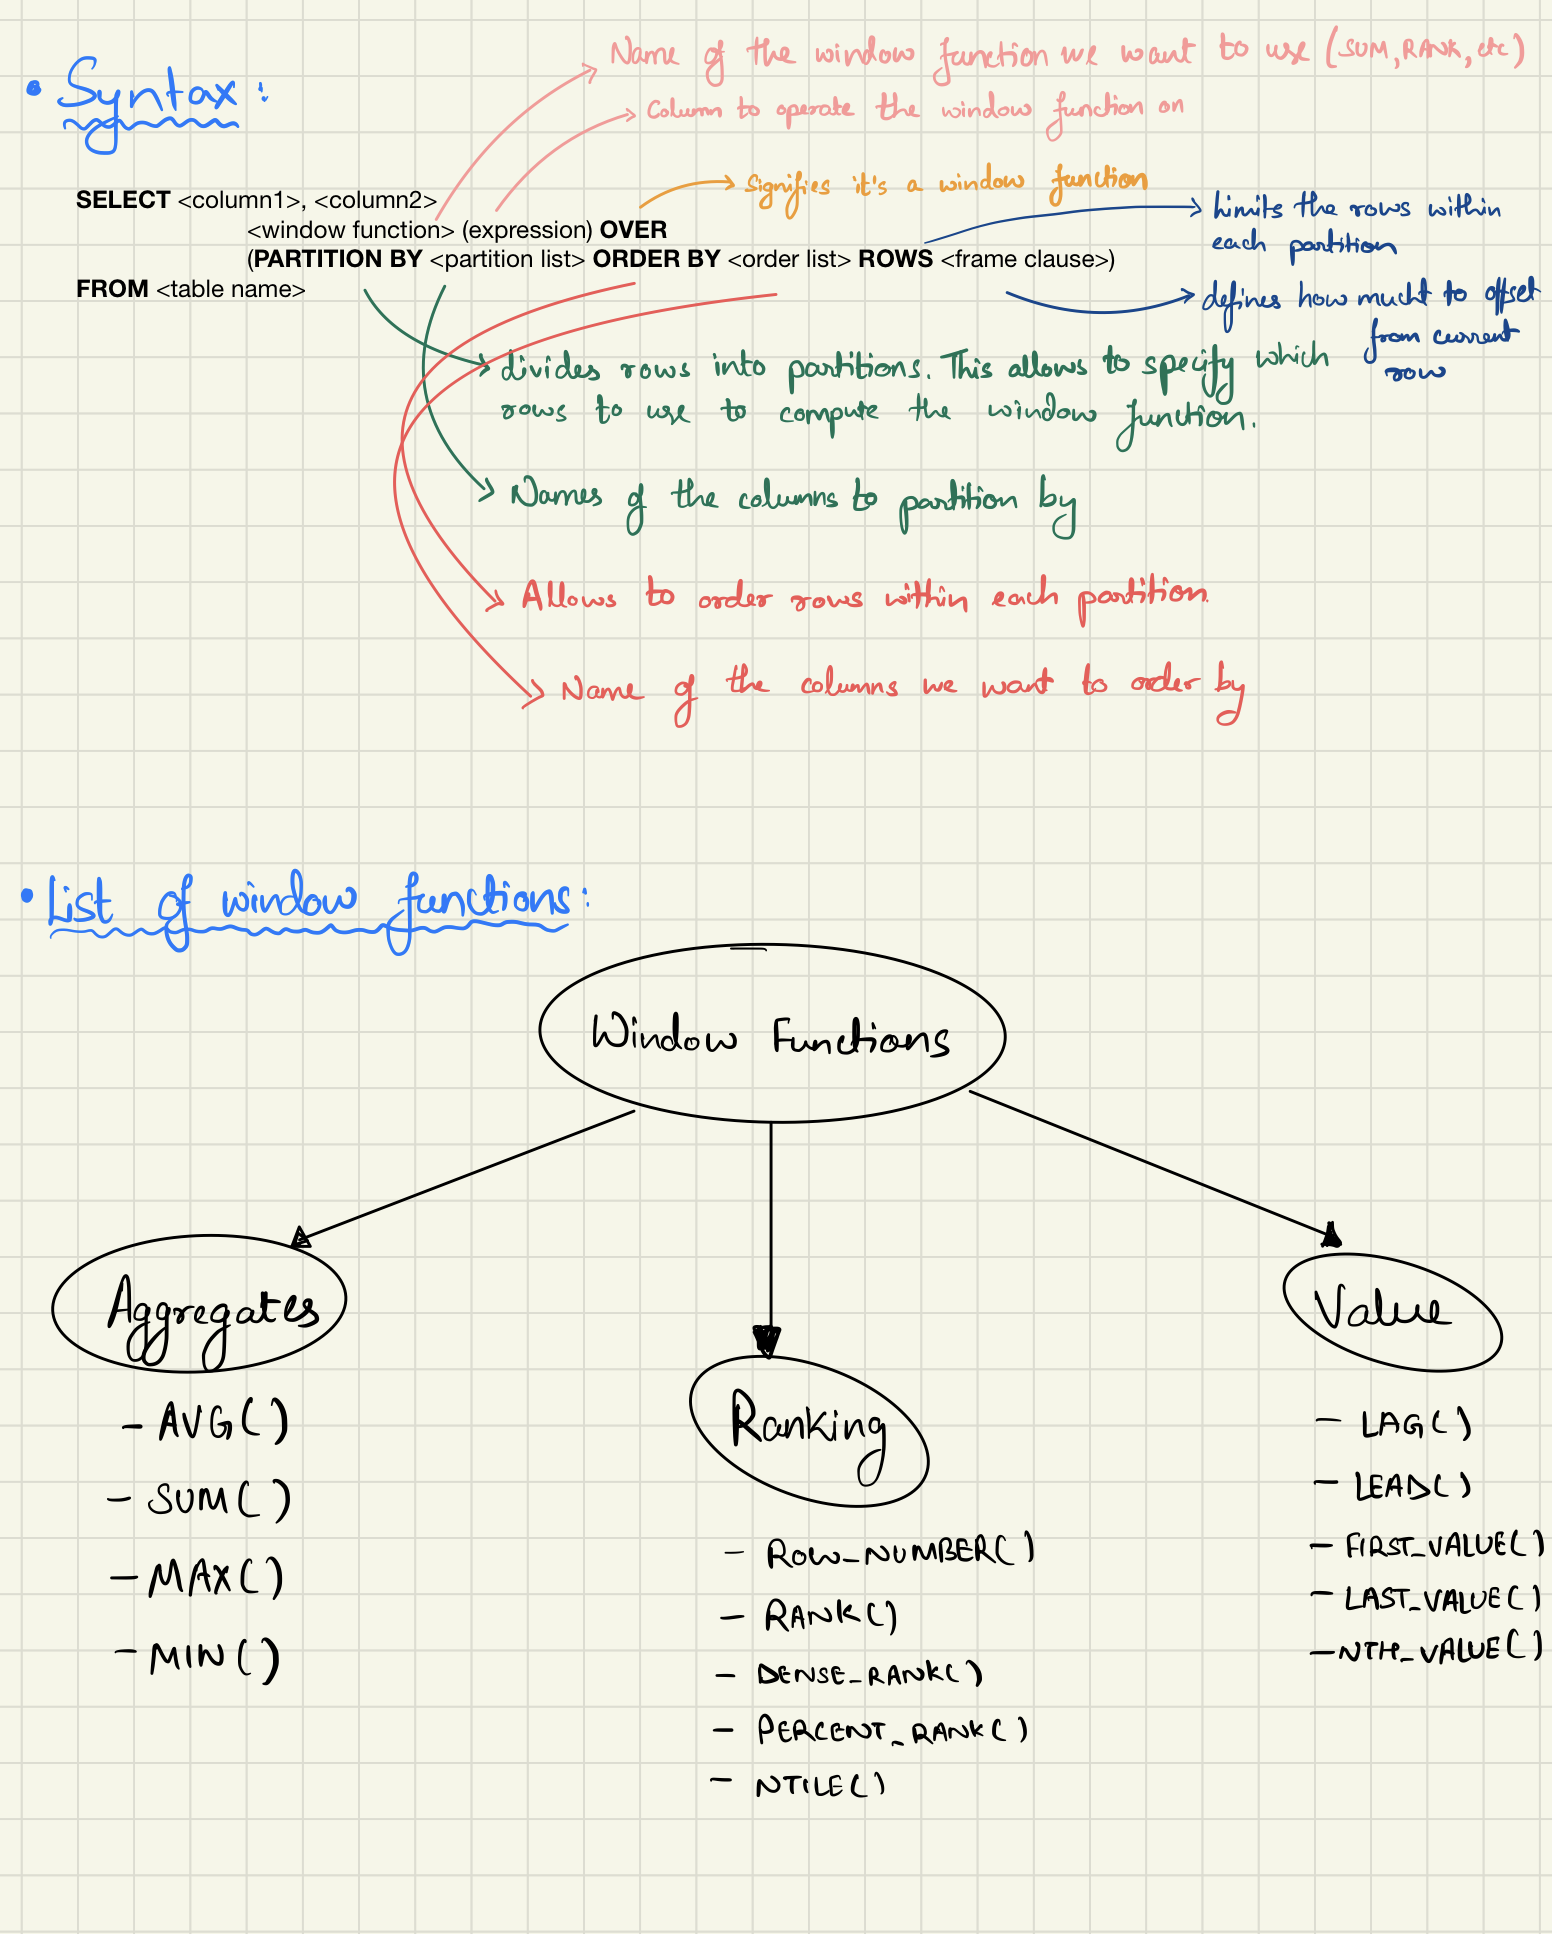 • Syntax:
Name of the window function we want to use (SUM, RANK, etc)
Column to operate the window function on
signifies it's a window function
SELECT <column1>, <column2>
<window function> (expression) OVER
(PARTITION BY <partition list> ORDER BY <order list> ROWS <frame clause>)
FROM <table name>
Limits the rows within
each partition
defines how mucht to offset
from current
row
divides rows into partitions. This allows to specify which
rows to use to compute the window function.
Names of the columns to partition by
Allows to order rows within each partition.
Name of the columns we want to order by
• List of window functions:
Window Functions
Aggregates
- AVG()
- SUM()
- MAX()
- MIN()
Ranking
- ROW_NUMBER()
- RANK()
- DENSE_RANK()
- PERCENT_RANK()
- NTILE()
Value
- LAG()
- LEAD()
- FIRST_VALUE()
- LAST_VALUE()
- NTH_VALUE()